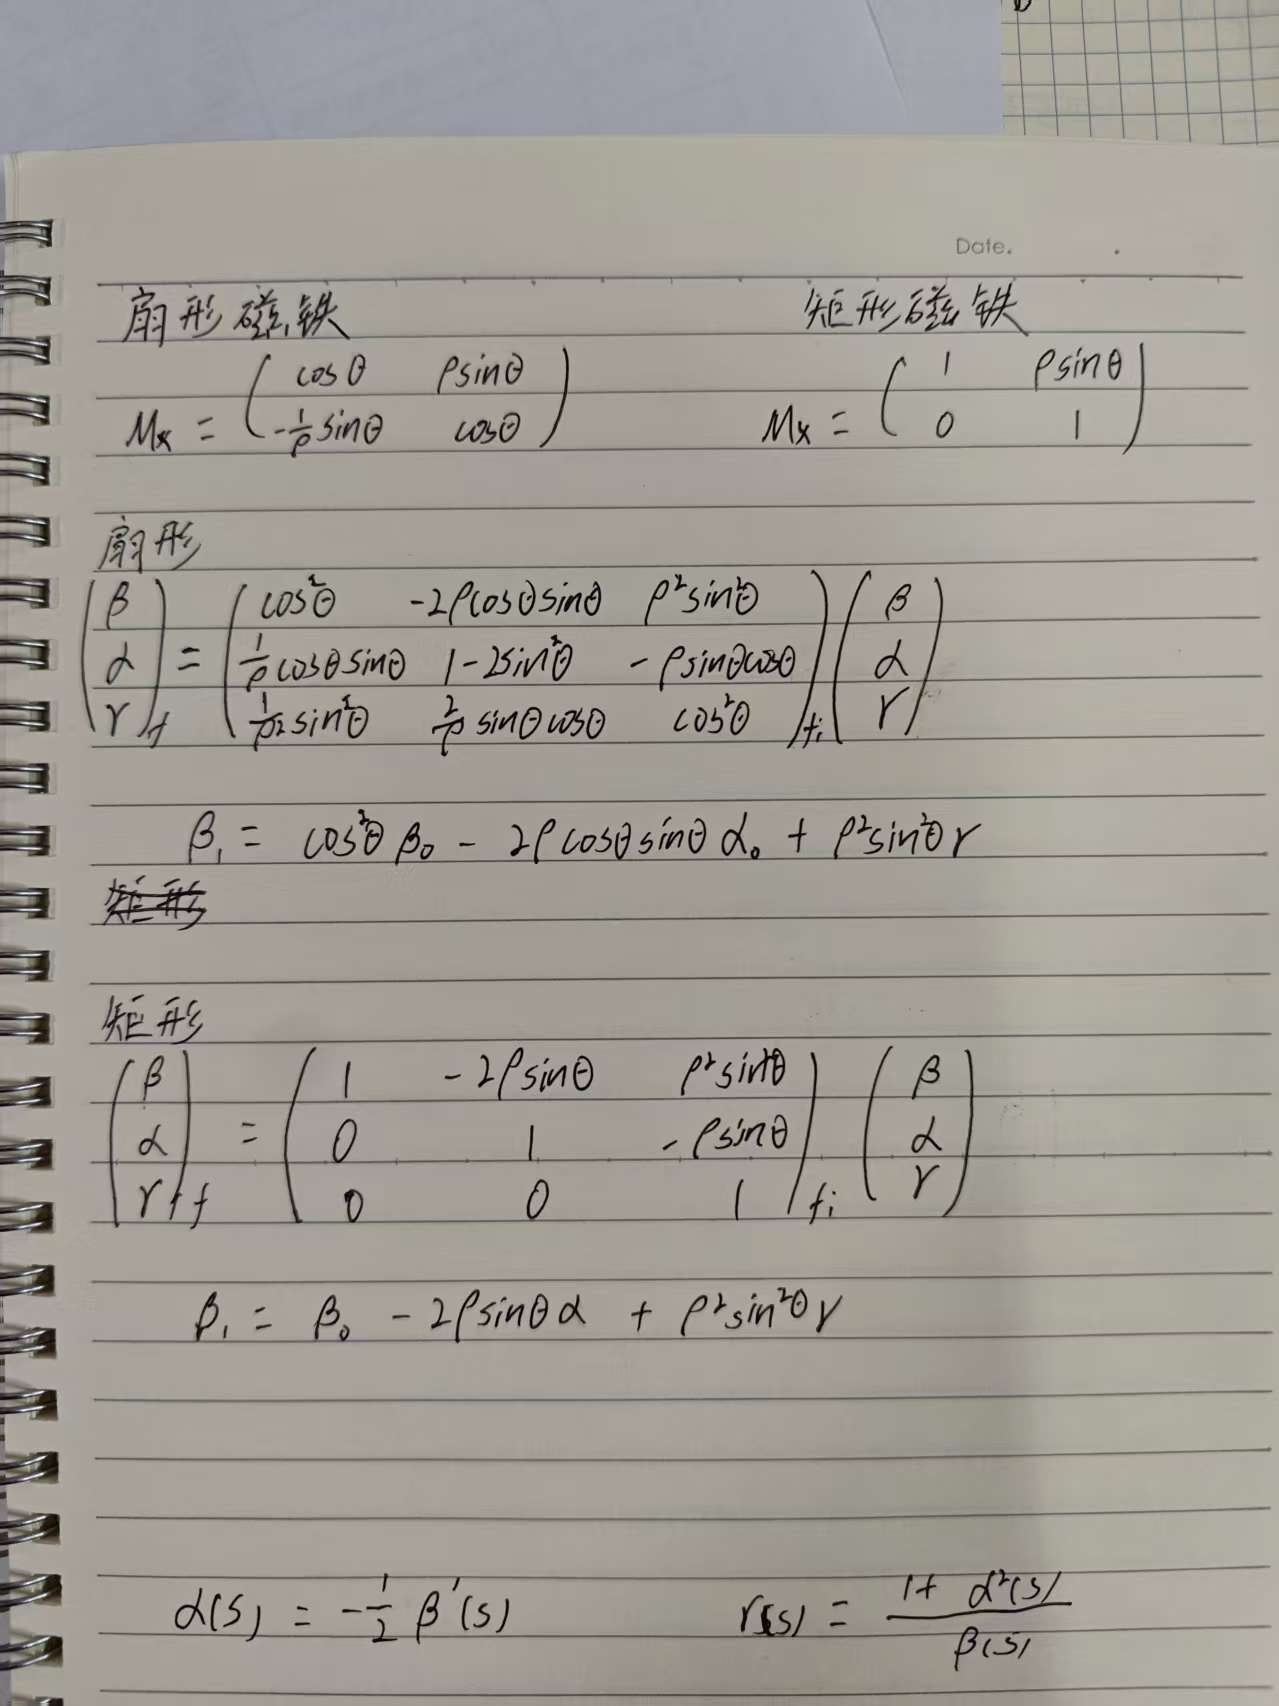 Date.
扇形磁铁 矩形磁铁
Mx = ( cosθ ρsinθ ) Mx = ( 1 ρsinθ )
( -1/ρ sinθ cosθ ) ( 0 1 )
扇形
( β ) ( cos²θ -2ρcosθsinθ ρ²sin²θ ) ( β )
( α ) = ( 1/ρ cosθsinθ 1-2sin²θ -ρsinθcosθ ) ( α )
( γ )f ( 1/ρ² sin²θ 2/ρ sinθcosθ cos²θ )fi ( γ )
β₁ = cos²θ β₀ - 2ρcosθsinθ α₀ + ρ²sin²θ γ
矩形
矩形
( β ) ( 1 -2ρsinθ ρ²sin²θ ) ( β )
( α ) = ( 0 1 -ρsinθ ) ( α )
( γ )f ( 0 0 1 )fi ( γ )
β₁ = β₀ - 2ρsinθ α + ρ²sin²θ γ
α(s) = -1/2 β'(s) γ(s) = (1+α²(s))/β(s)